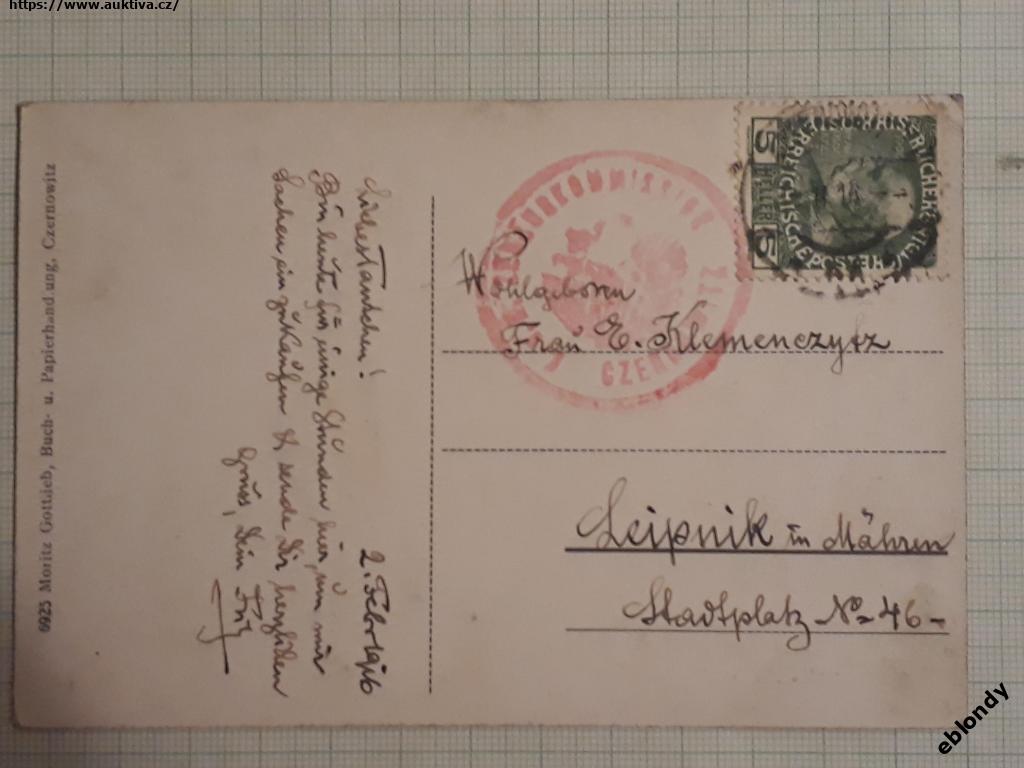 https://www.auktiva.cz/
6925 Moritz Gottlieb, Buch- u. Papierhandlung, Czernowitz
Liebes Tantchen! 2. Feber 1916
Bin heute für einige Stunden hier, um mir
Sachen einzukaufen & sende Dir herzlichen
Gruss, Dein Fritz
ZENSURKOMMISSION
CZERNOWITZ
5 HELLER 5
Wohlgeboren
Frau E. Klemenczytz
Leipnik in Mähren
Stadtplatz No 46-
eblondy